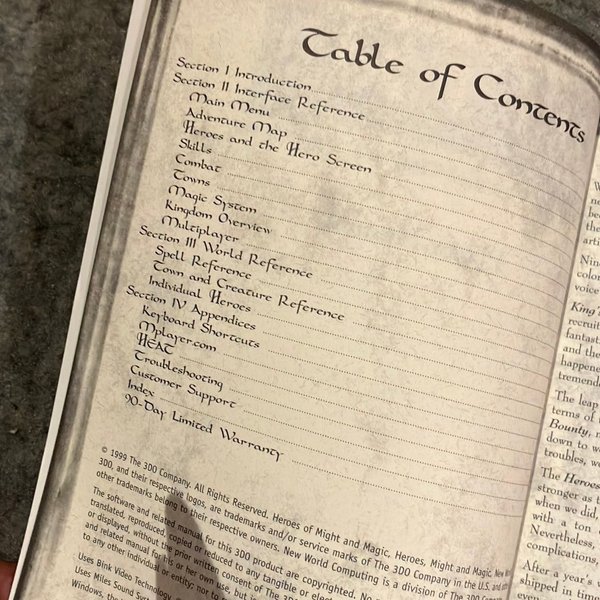 Table of Contents
Section I Introduction
Section II Interface Reference
Main Menu
Adventure Map
Heroes and the Hero Screen
Skills
Combat
Towns
Magic System
Kingdom Overview
Multiplayer
Section III World Reference
Spell Reference
Town and Creature Reference
Individual Heroes
Section IV Appendices
Keyboard Shortcuts
Mplayer.com
HEAT
Troubleshooting
Customer Support
Index
90-Day Limited Warranty
© 1999 The 3DO Company. All Rights Reserved. Heroes of Might and Magic, Heroes, Might and Magic, New
3DO, and their respective logos, are trademarks and/or service marks of The 3DO Company in the U.S. and
other trademarks belong to their respective owners. New World Computing is a division of The 3DO
The software and related manual for this 3DO product are copyrighted. No
translated, reproduced, copied or reduced to any tangible or
or displayed, without the prior written consent of The 3DO
and related manual for his or her own use, but
to any other individual or entity; nor to
Uses Bink Video Technology.
Uses Miles Sound
Windows, the
King's
recruit
fantast
and the
happene
tremend
The leap
terms of
Bounty,
down to
troubles, we
The Heroes
stronger as
when we did,
with a ton
Nevertheless,
complications,
After a year's
shipped in time
even.